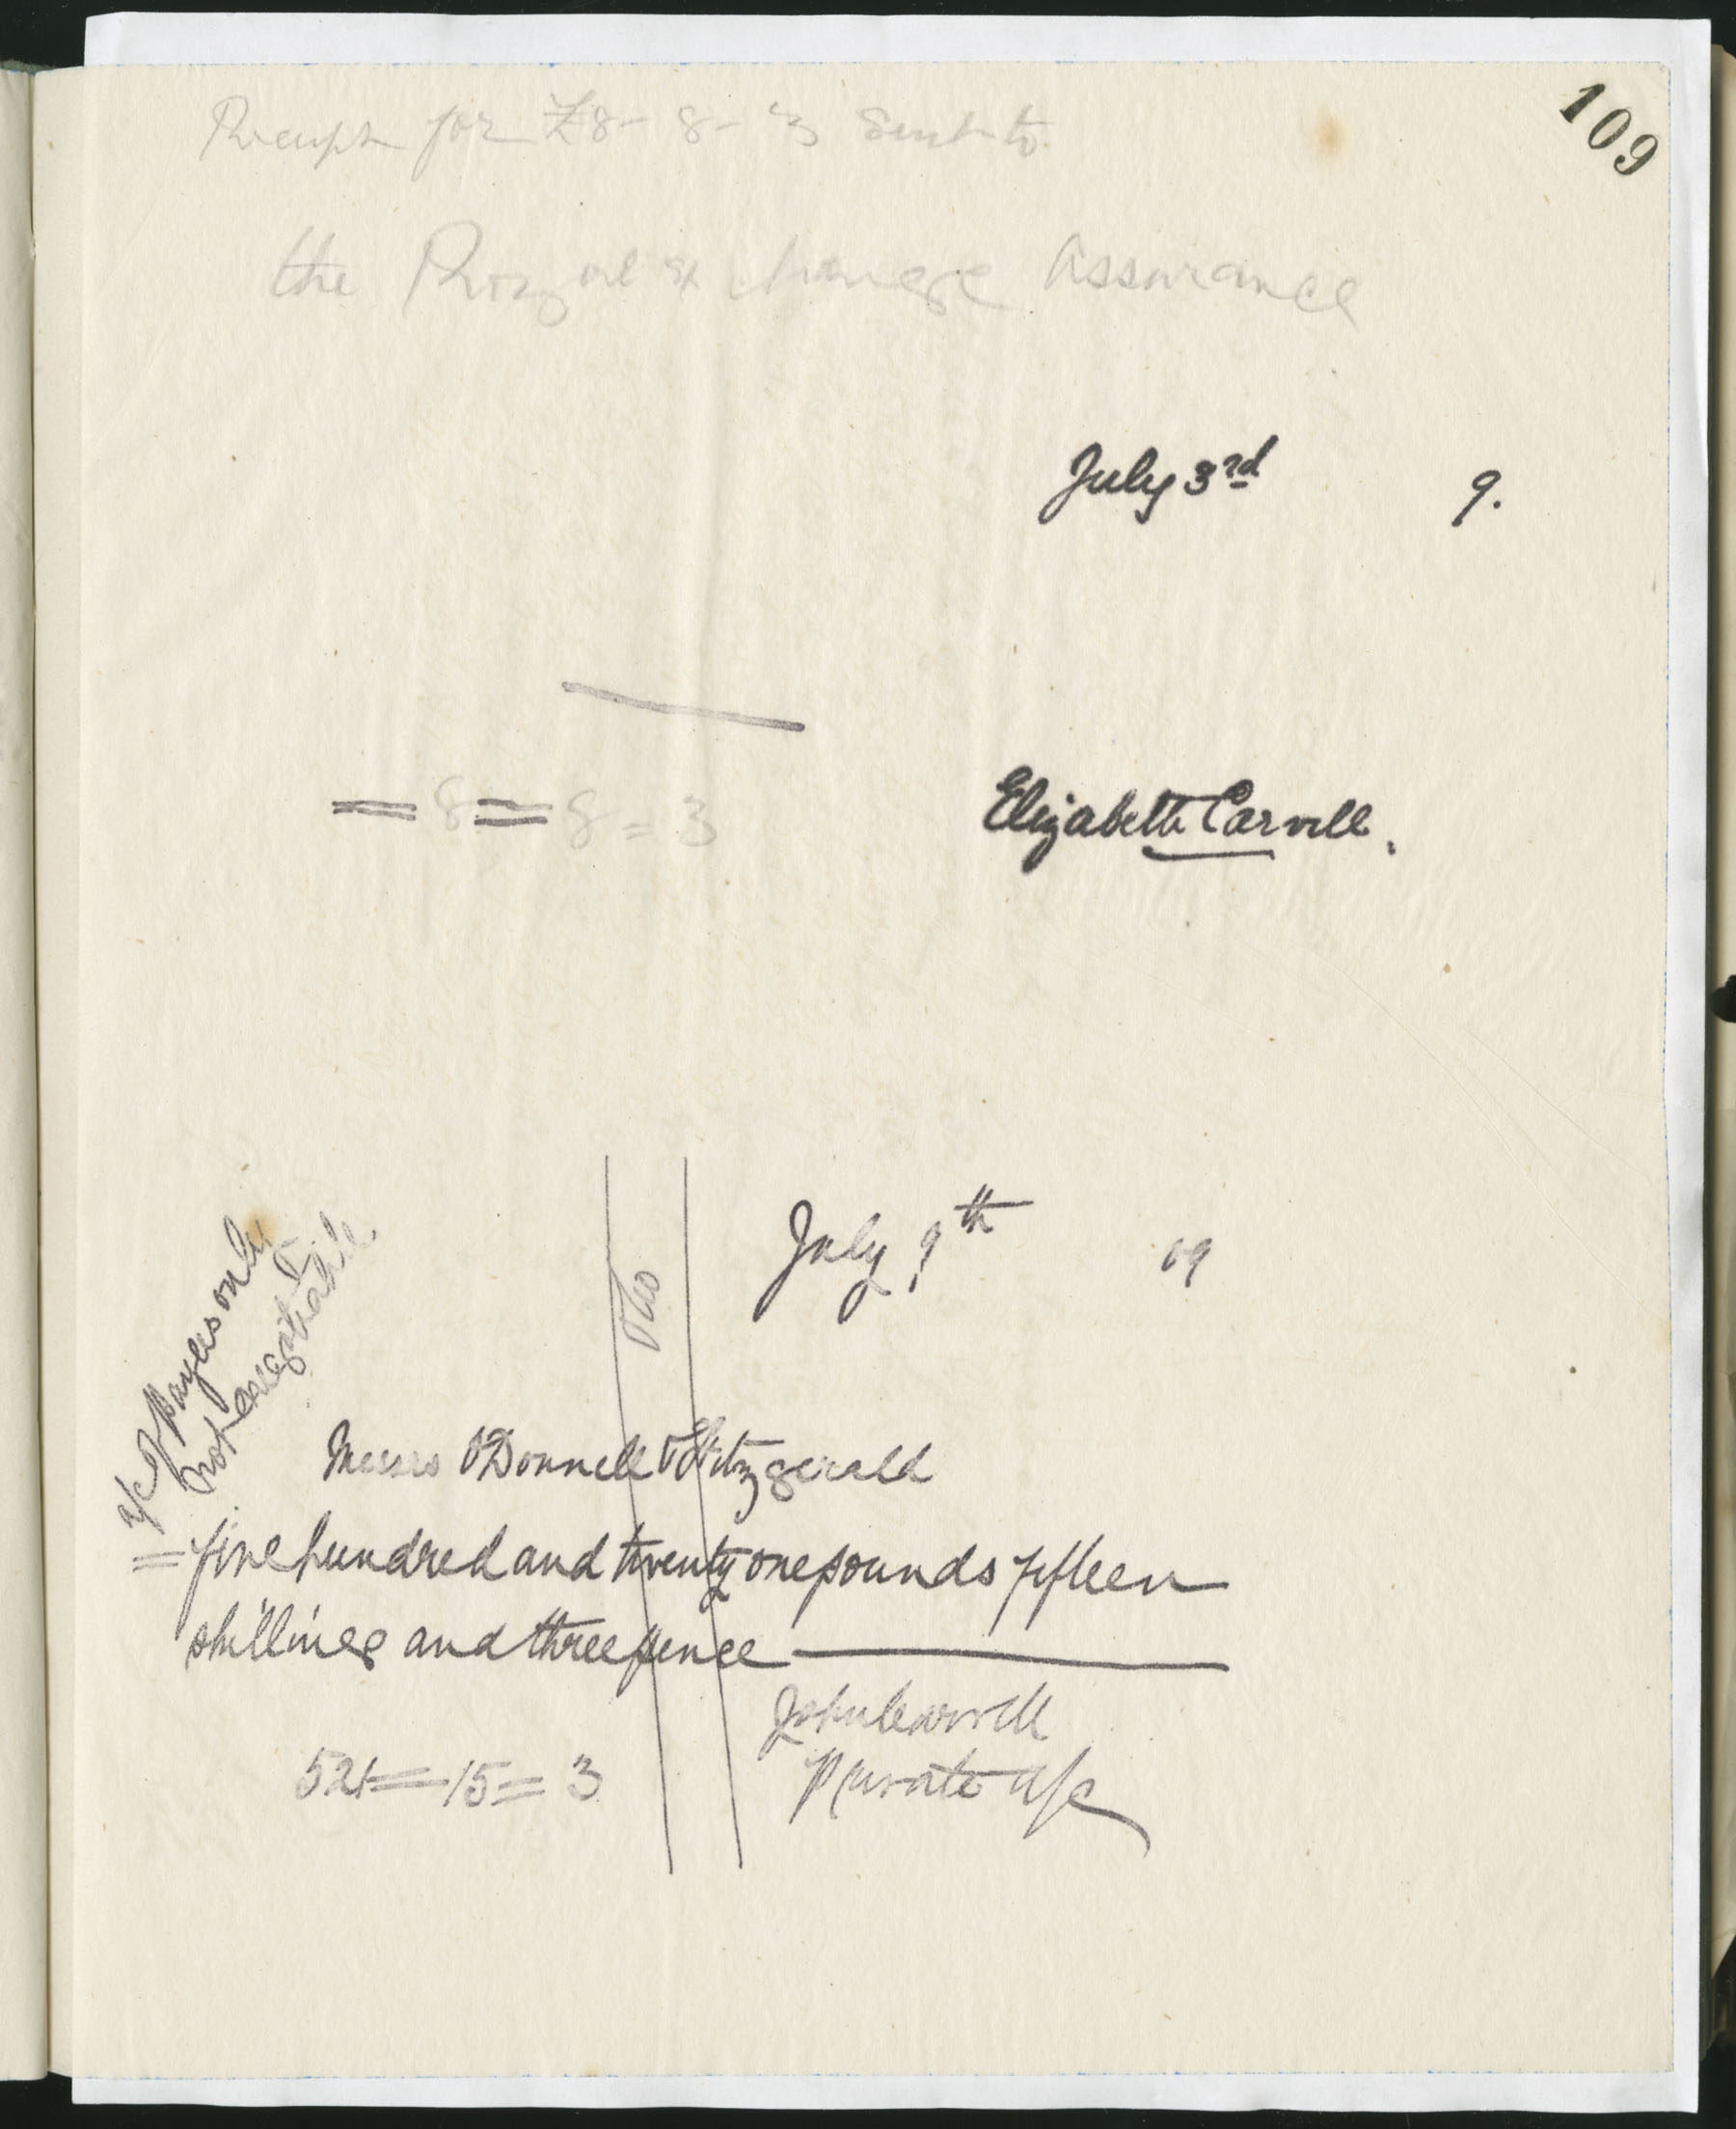 109
Receipt for £8-8-3 sent to
the Royal Exchange Assurance
July 3rd 9.
= 8 = 8 = 3
Elizabeth Carvill.
July 9th 09
& Co
a/c of payees only
not negotiable
Messrs O'Donnell & Fitzgerald
= five hundred and twenty one pounds fifteen
shillings and three pence
John Carvill
Private a/c
521 = 15 = 3